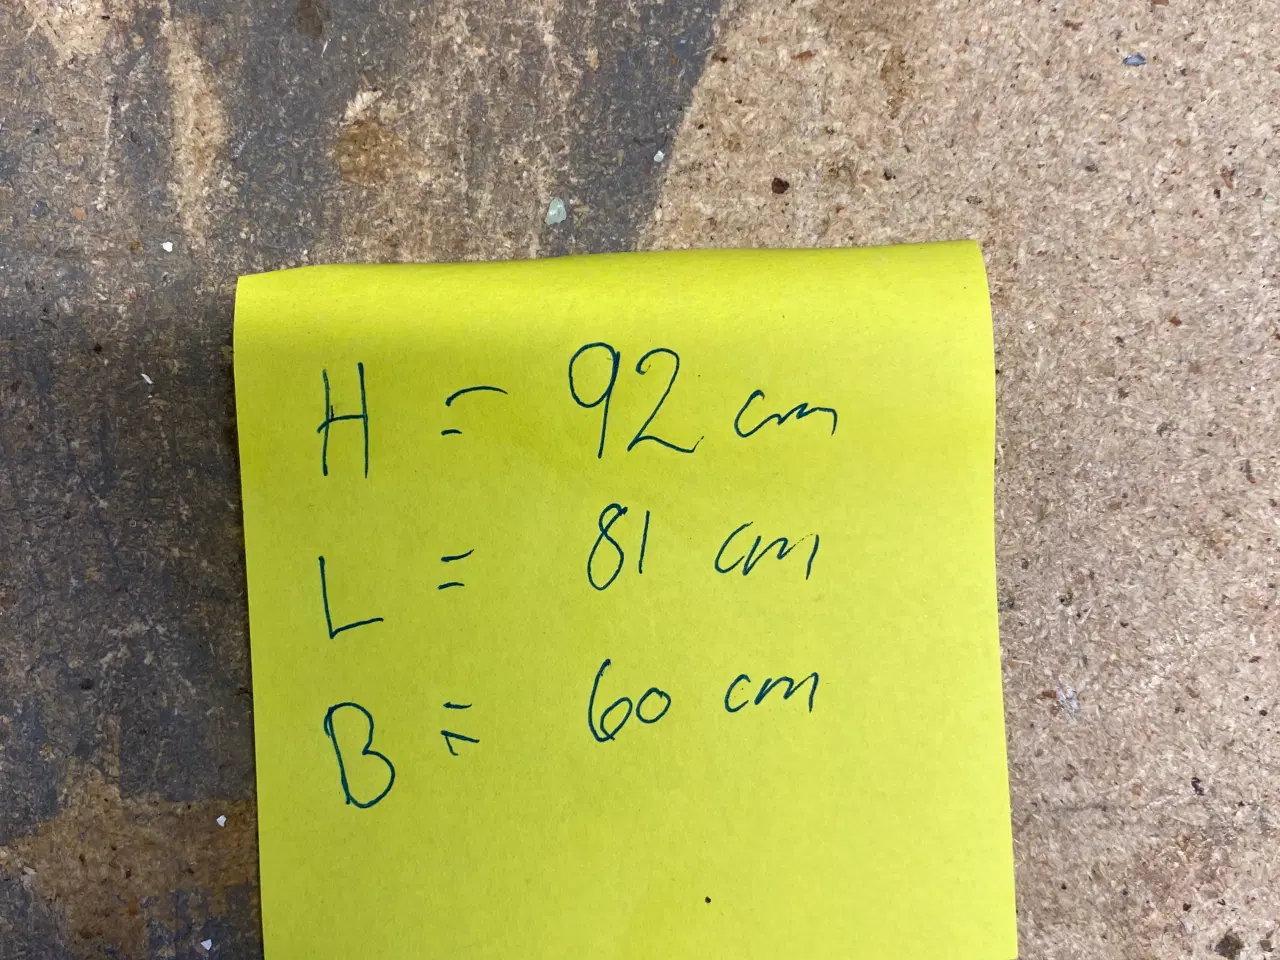 H = 92 cm
L = 81 cm
B = 60 cm